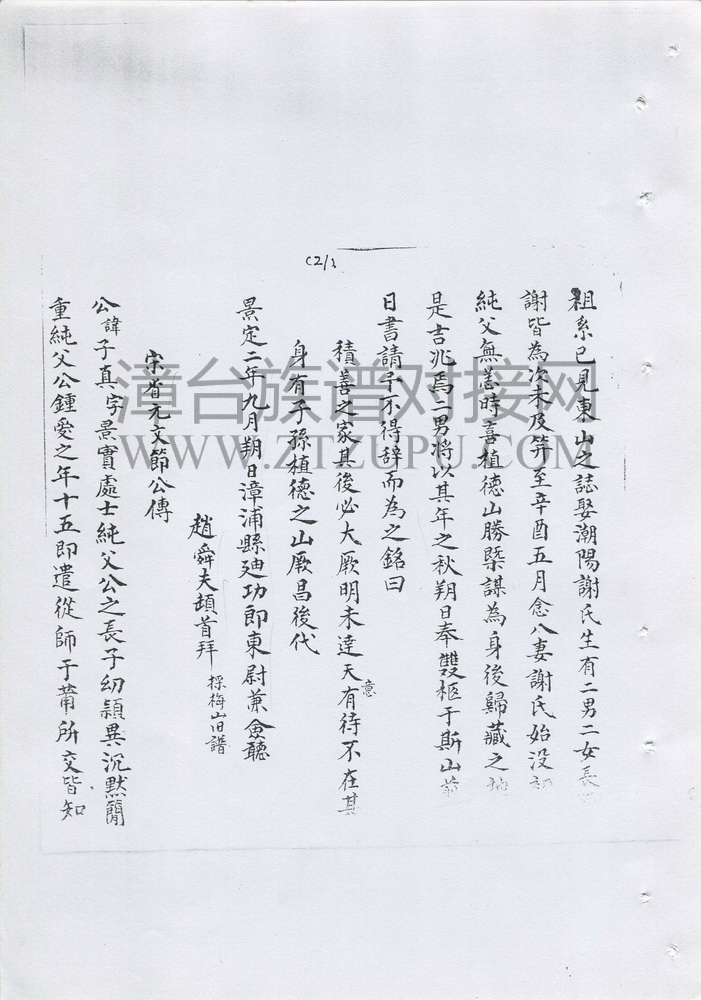 (2/1
祖系已見東山之誌娶潮陽謝氏生有二男二女長
謝皆為次未及筓至辛酉五月念八妻謝氏始没
純父無恙時喜植德山勝槩謀為身後歸藏之
是吉兆焉二男將以其年之秋朔日奉雙柩于斯山
日書請千不得辞而為之銘曰
積善之家其後必大厥明未達天有待不在其
意
身有子孫植德之山厥昌後代
景定二年九月朔日漳浦縣迪功即東尉兼僉聽
趙舜夫頓首拜 採梅山旧譜
宗省元文節公傳
公諱子真字景實處士純父公之長子幼頴異沉默簡
重純父公鍾愛之年十五即遣從師于莆所交皆知
漳台族谱对接网
WWW.ZTZUPU.COM